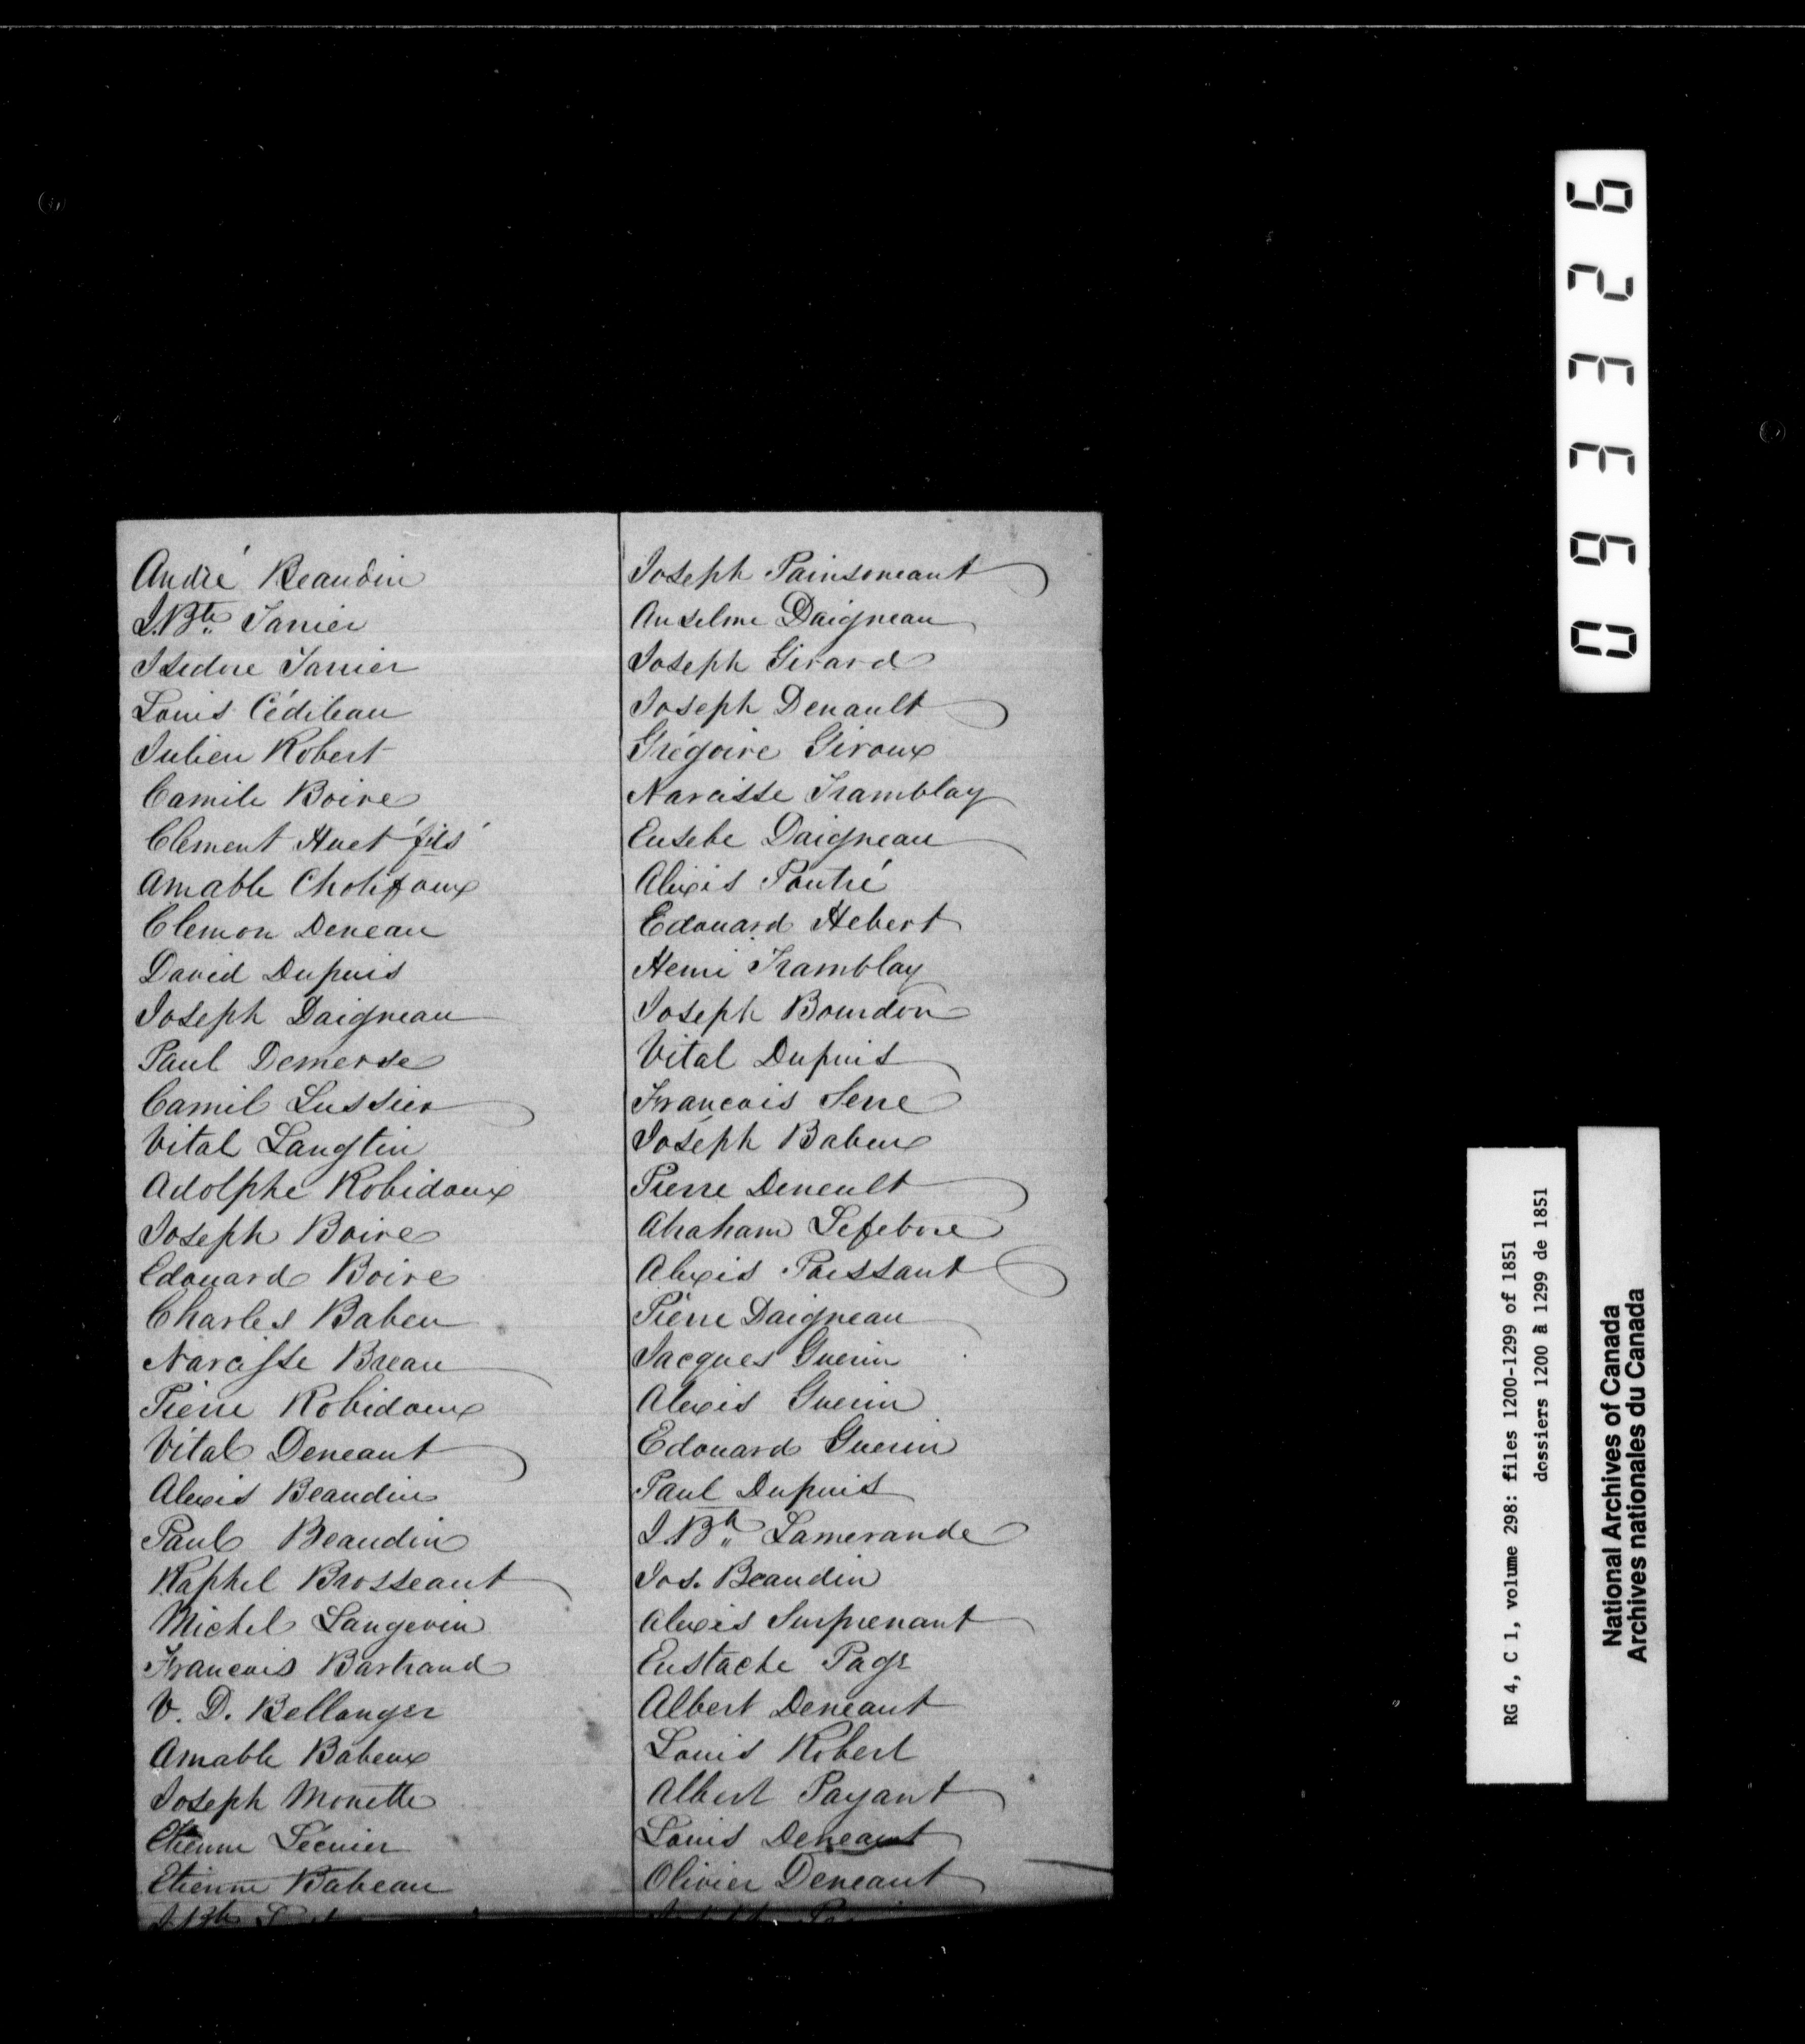 André Beaudin
J. Bte Tanier
Isidore Tanier
Louis Cédileau
Julien Robert
Camile Boire
Clement Huet fils
Amable Cholifoux
Clemon Deneau
David Dupuis
Joseph Daigneau
Paul Demerse
Camil Lussier
Vital Langtin
Adolphe Robidoux
Joseph Boire
Edouard Boire
Charles Babeu
Narcisse Breau
Pierre Robidoux
Vital Deneaut
Alexis Beaudin
Paul Beaudin
Raphel Brosseaut
Michel Langevin
Francois Bartrand
V. D. Bellanger
Amable Babeux
Joseph Monette
Etienne Lécuier
Etienne Babeau
Joseph Painsoneaut
Anselme Daigneau
Joseph Girard
Joseph Denault
Grégoire Giroux
Narcisse Tramblay
Eusebe Daigneau
Alexis Poutré
Edouard Hebert
Henri Tramblay
Joseph Bourdon
Vital Dupuis
Francois Serre
Joseph Babeux
Pierre Deneult
Abraham Lefebvre
Alexis Poissant
Pierre Daigneau
Jacques Guerin
Alexis Guerin
Edouard Guerin
Paul Dupuis
J. Bte Lamerande
Jos. Beaudin
Alexis Surprenant
Eustache Page
Albert Deneaut
Louis Robert
Albert Payant
Louis Deneaut
Olivier Deneaut
093326
RG 4, C 1, volume 298: files 1200-1299 of 1851
dossiers 1200 à 1299 de 1851
National Archives of Canada
Archives nationales du Canada